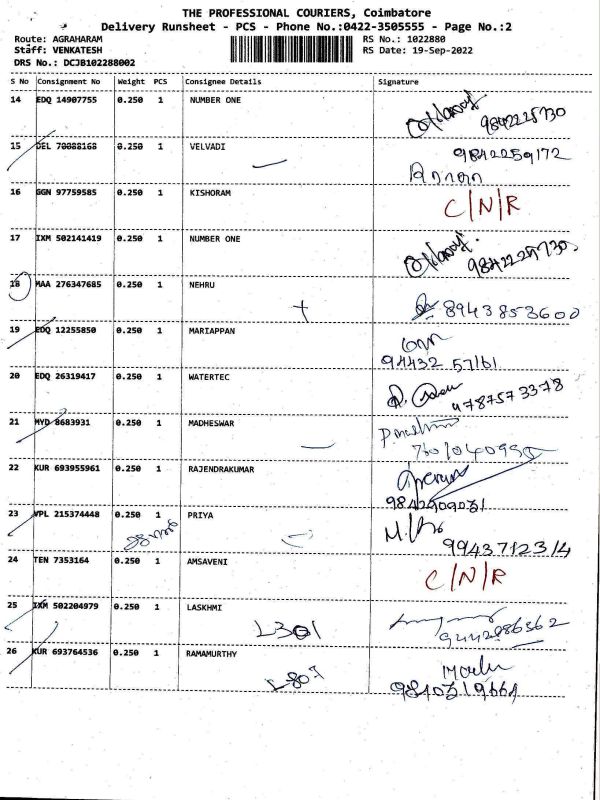 THE PROFESSIONAL COURIERS, Coimbatore
Delivery Runsheet - PCS - Phone No.:0422-3505555 - Page No.:2
Route: AGRAHARAM RS No.: 1022880
Staff: VENKATESH RS Date: 19-Sep-2022
DRS No.: DCJB102288002
S No Consignment No Weight PCS Consignee Details Signature
14 EDQ 14907755 0.250 1 NUMBER ONE
9842225730
15 DEL 70088168 0.250 1 VELVADI 9842259172
16 GGN 97759585 0.250 1 KISHORAM C/N/R
17 IXM 502141419 0.250 1 NUMBER ONE
9842225730
18 MAA 276347685 0.250 1 NEHRU
8943853600
19 EDQ 12255850 0.250 1 MARIAPPAN
94432 57161
20 EDQ 26319417 0.250 1 WATERTEC
9787573378
21 MYD 8683931 0.250 1 MADHESWAR
22 KUR 693955961 0.250 1 RAJENDRAKUMAR
23 VPL 215374448 0.250 1 PRIYA
9943712314
24 TEN 7353164 0.250 1 AMSAVENI
C/N/R
25 IXM 502204979 0.250 1 LASKHMI
L301 9442986562
26 KUR 693764536 0.250 1 RAMAMURTHY